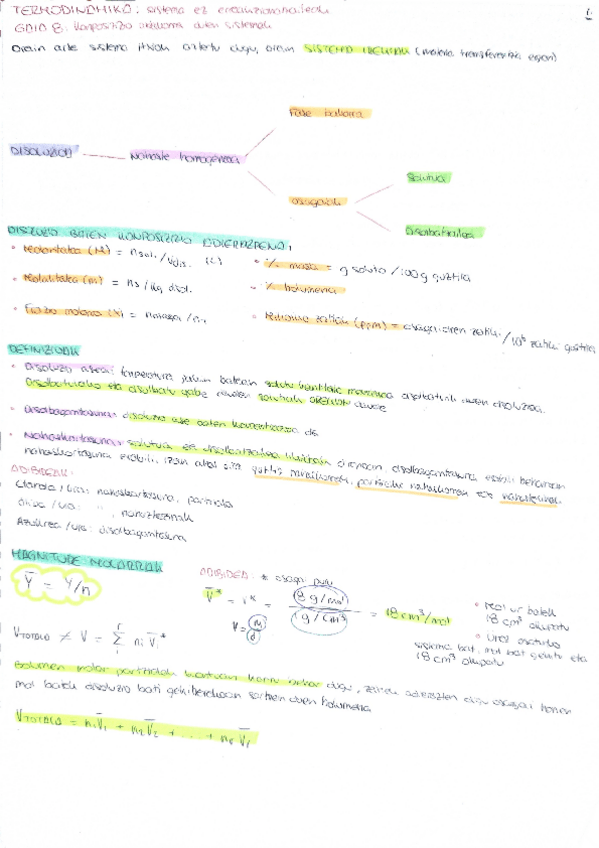 TERMODINAMIKA: sistema ez erreakzionatzaileak
GAIA 8: Konposizio aldakorra duten sistemak
Orain arte sistema itxiak aztertu ditugu, orain SISTEMA IREKIAK (materia transferentzia egon)
Fase bakarra
DISOLUZIOA
Nahaste homogeneoa
Solutua
osagaiak
Disolbatzailea
DISOLUZIO BATEN KONPOSIZIO ADIERAZPENA:
• Molaritatea (M) = nsol. / Vdis. (L)
• % masa = g soluto / 100 g guztira
• Molalitatea (m) = ns / kg disol.
• % bolumena
• Frakzio molarra (X) =
(ppm) = / 10⁶ zatiki guztira
DEFINIZIOAK
• Disoluzio asea: tenperatura jakin batean solutu kantitate maximoa disolbaturik duen disoluzioa.
Disolbaturiko eta disolbatu gabe dauden solutuak OREKAN daude
• Disolbagarritasuna: disoluzio ase baten kontzentrazioa da
• Nahaskortasuna: solutua eta disolbatzailea likidoak direnean, disolbagarritasuna erabili beharrean
nahaskortasuna erabili, izan ahal dira guztiz nahaskorrak, partzialki nahaskorrak eta nahastezinak.
ADIBIDEAK:
/ura: nahaskortasuna, partziala
Olioa / ura: " , nahastezinak
Azukrea / ura: disolbagarritasuna
MAGNITUDE MOLARRAK
Ȳ = Y/n
ADIBIDEA: * osagai purua
V̄* = V* = (18 g/mol) / (1 g/cm³) = 18 cm³/mol
V = m/d
• Mol ur batek
18 cm³ okupatu
• Urez osaturiko
sistema bat, mol bat gehitu eta
18 cm³ okupatu
VTOTALA ≠ V = Σ ni V̄i*
Bolumen molar partzialak kontuan hartu behar ditugu, zeinek adierazten digu osagai horren
mol batek disoluzio bati gehitzerakoan sortzen duen bolumena
VTOTALA = n₁V̄₁ + n₂V̄₂ + ... + niV̄i